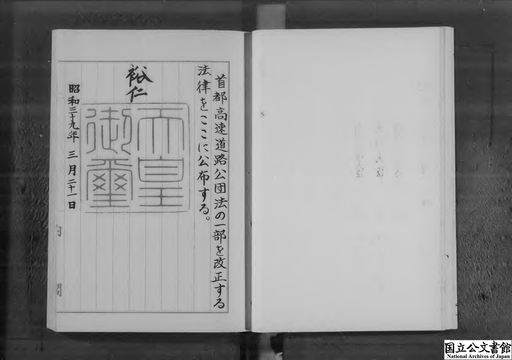 首都高速道路公団法の一部を改正する
法律をここに公布する。
裕仁
天皇
御璽
昭和三十九年三月二十一日
国立公文書館
National Archives of Japan